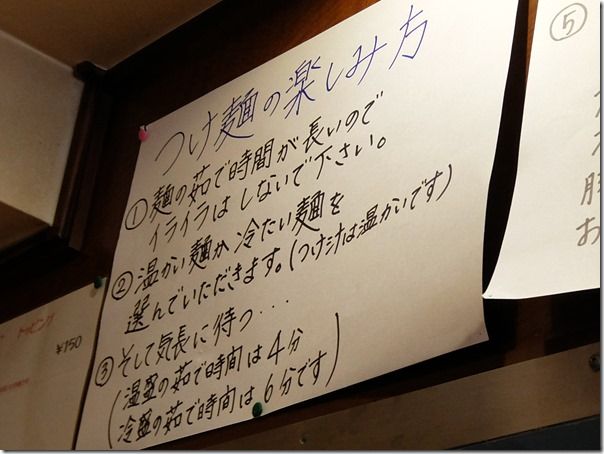 つけ麺の楽しみ方
① 麺の茹で時間が長いので
イライラはしないで下さい。
② 温かい麺か冷たい麺を
選んでいただきます。(つけ汁は温かいです)
③ そして気長に待つ・・・
(温盛の茹で時間は4分
冷盛の茹で時間は6分です)
トッピング
¥150
⑤
お